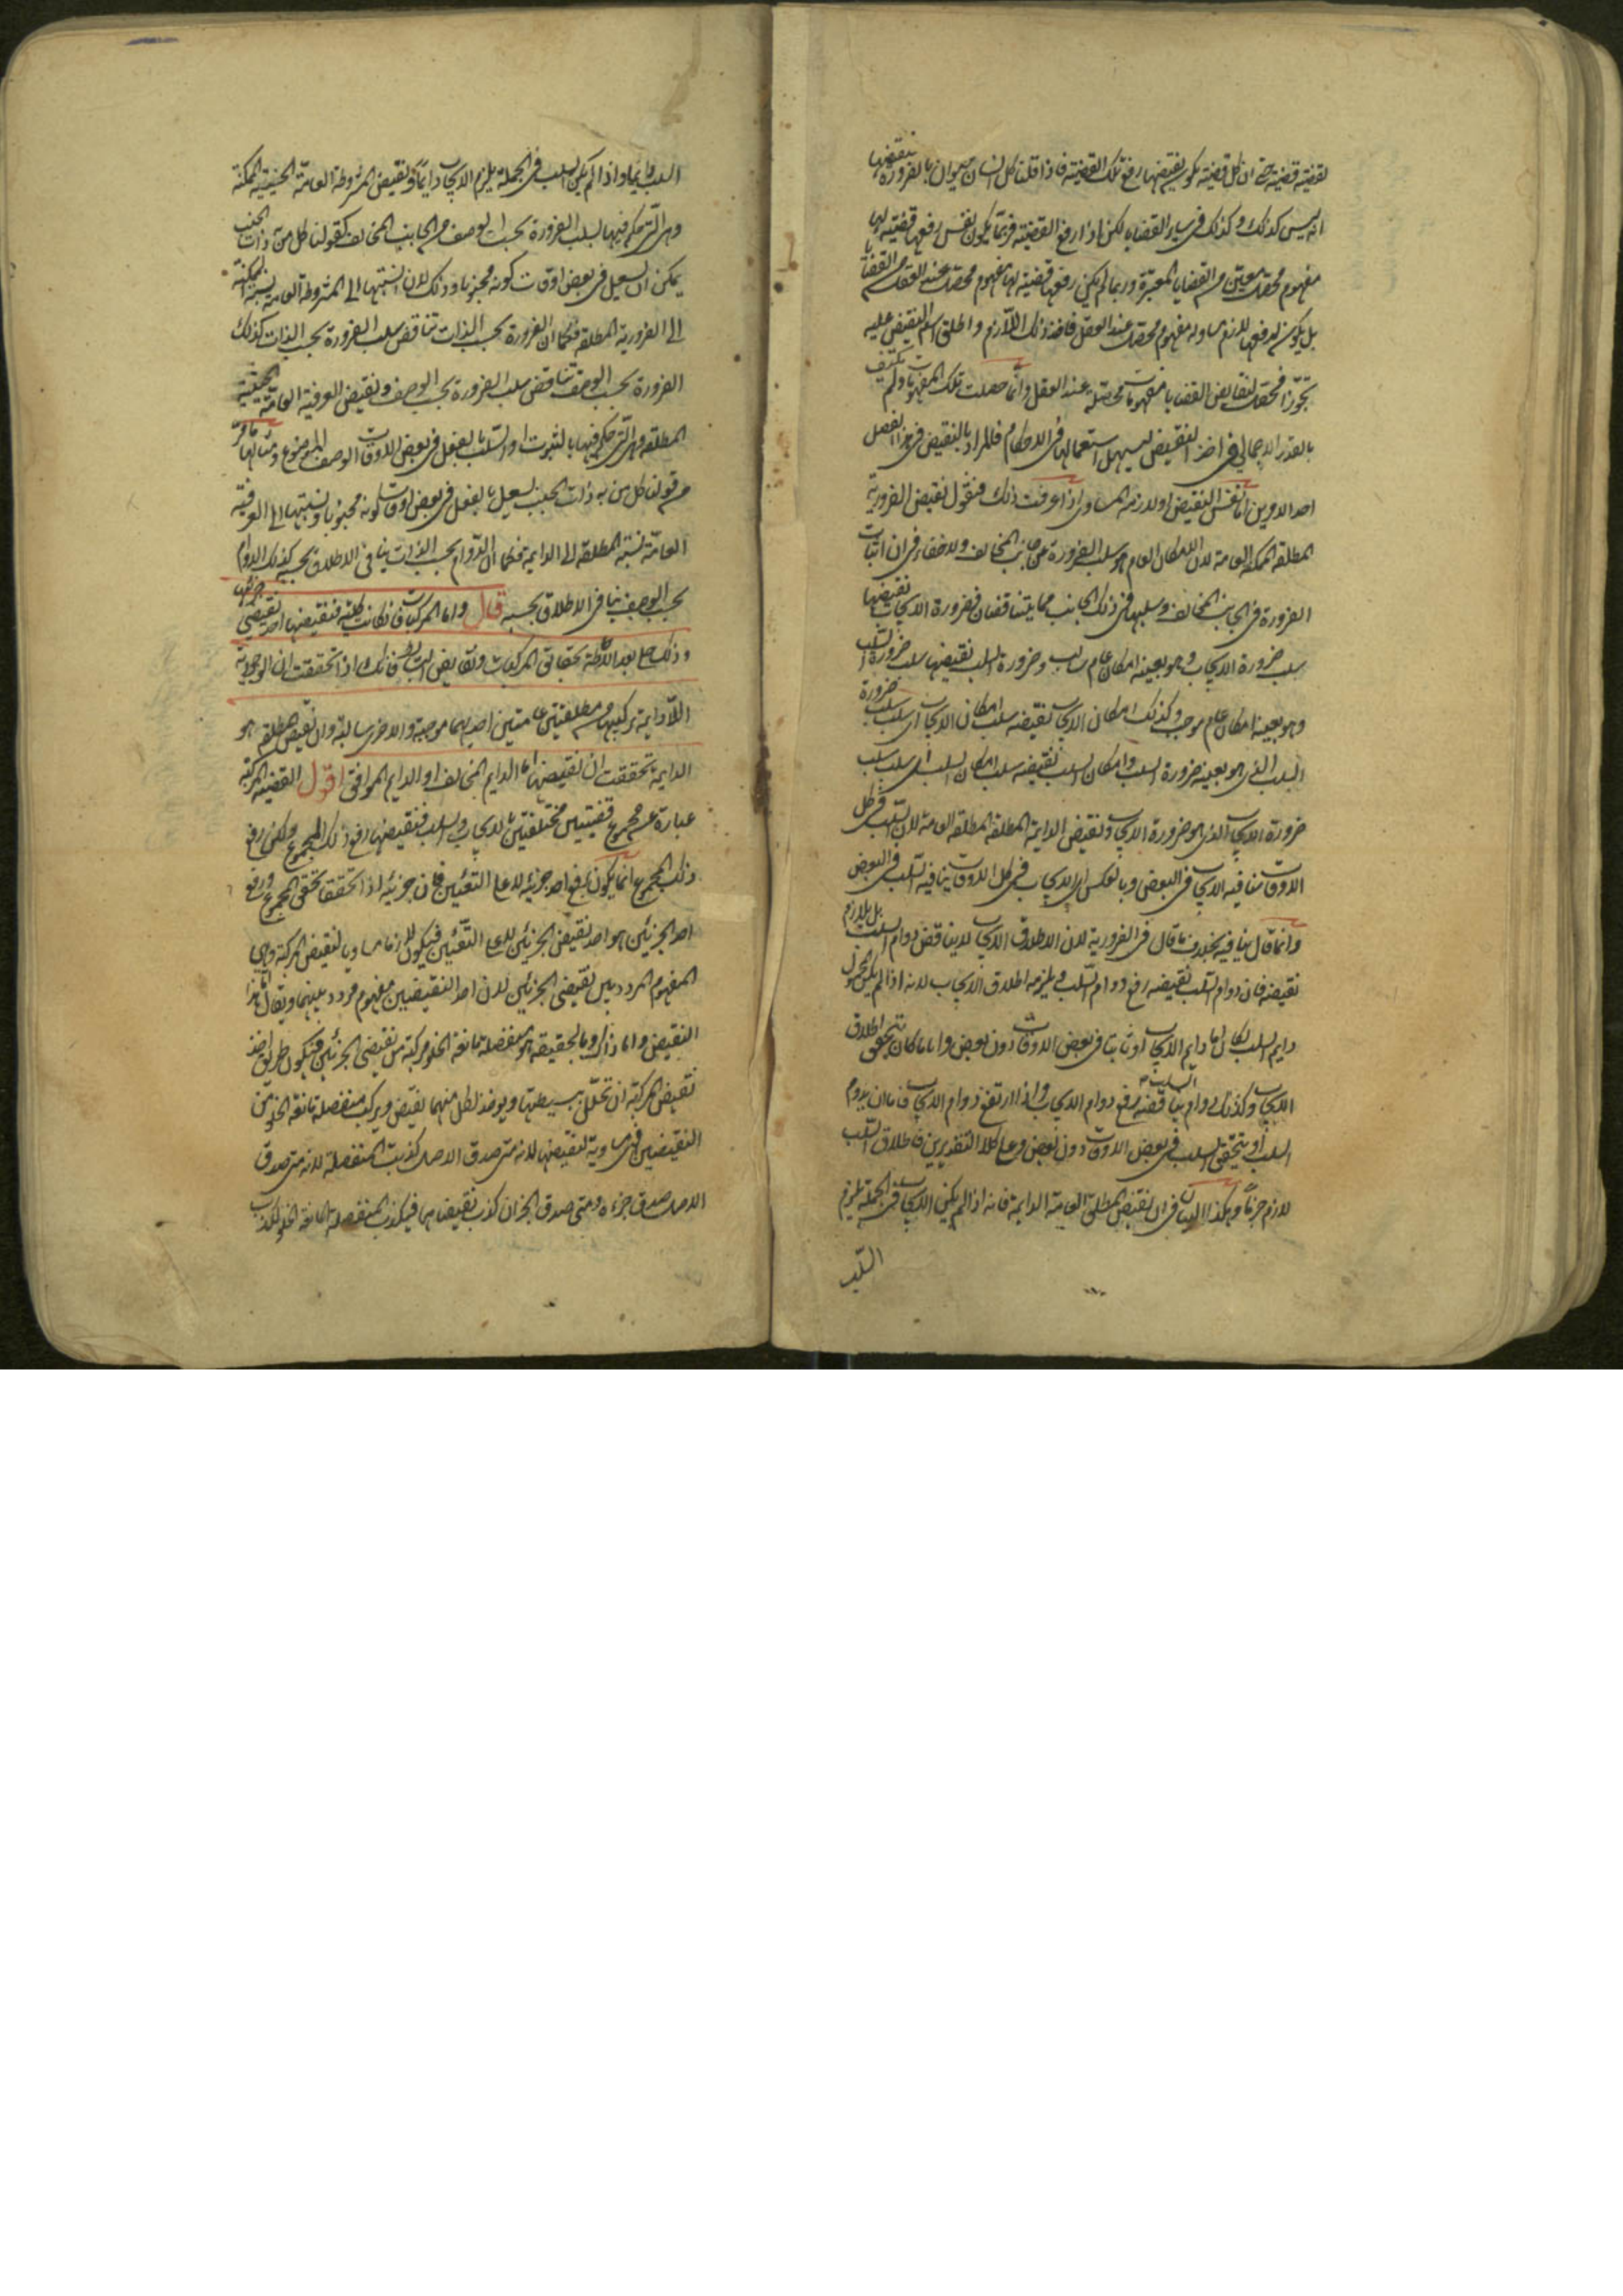 لقضية قضية حتى ان كل قضية يكون نقيضها رفع تلك القضية فاذا قلنا كل انسان حيوان بالضرورة فنقيضها
انه ليس كذلك وكذلك في ساير القضايا لكن اذا رفع القضية فربما يكون نفس رفعها قضية لها
مفهوم محصل معين من القضايا المعتبرة وربما لم يكن رفعها قضية لها مفهوم محصل عند العقل من القضايا
بل يكون لرفعها لازم مساو له مفهوم محصل عند العقل فاخذ ذلك اللازم واطلق اسم النقيض عليه
تجوزا فحصل لنقايض القضايا مفهومات محصلة عند العقل وانما حصلت تلك المفهومات ولم يكتف
بالقدر الاجمالي في اخذ النقيض ليسهل استعمالها في الاحكام فالمراد بالنقيض في هذا الفصل
احد الامرين اما نفس النقيض او لازمه المساوي اذا عرفت ذلك فنقول نقيض الضرورية
المطلقة الممكنة العامة لان الامكان العام هو سلب الضرورة عن جانب المخالف ولا خفاء في ان اثبات
الضرورة في الجانب المخالف وسلبها في ذلك الجانب مما يتناقضان فضرورة الايجاب نقيضها
سلب ضرورة الايجاب وهو بعينه امكان عام سالب وضرورة السلب نقيضها سلب ضرورة السلب
وهو بعينه امكان عام موجب وكذلك امكان الايجاب نقيضه سلب امكان الايجاب اي سلب سلب ضرورة
السلب الذي هو بعينه ضرورة السلب وامكان السلب نقيضه سلب امكان السلب اي سلب سلب
ضرورة الايجاب الذي هو ضرورة الايجاب ونقيض الدايمة المطلقة المطلقة العامة لان السلب في كل
الاوقات ينافيه الايجاب في البعض وبالعكس اي الايجاب في كل الاوقات ينافيه السلب في البعض
وانما قال ينافيه بخلاف ما قال في الضرورية لان الاطلاق الايجاب لا يناقض دوام السلب بل يلازم
نقيضه فان دوام السلب نقيضه رفع دوام السلب ويلزمه اطلاق الايجاب لانه اذا لم يكن المحمول
دايم السلب لكان اما دايم الايجاب او ثابتا في بعض الاوقات دون بعض واياما كان يتحقق اطلاق
الايجاب وكذلك دوام يناقضه رفع دوام الايجاب واذا ارتفع دوام الايجاب فاما ان يدوم
السلب او يتحقق السلب في بعض الاوقات دون بعض وعلى كلا التقديرين فاطلاق السلب
لازم جزما وهكذا البيان في ان نقيض المطلقة العامة الدايمة فانه اذا لم يكن الايجاب في الجملة يلزم
السلب
السلب دايما واذا لم يكن السلب في الجملة يلزم الايجاب دايما ونقيض المشروطة العامة الحينية الممكنة
وهي التي حكم فيها بسلب الضرورة بحسب الوصف من الجانب المخالف كقولنا كل من به ذات الجنب
يمكن ان يسعل في بعض اوقات كونه مجنوبا وذلك لان نسبتها الى المشروطة العامة نسبة الممكنة
الى الضرورية المطلقة فكما ان الضرورة بحسب الذات تناقض سلب الضرورة بحسب الذات كذلك
الضرورة بحسب الوصف تناقض سلب الضرورة بحسب الوصف ونقيض العرفية العامة الحينية
المطلقة وهي التي حكم فيها بالثبوت او السلب بالفعل في بعض اوقات الوصف الموضوع ومثالها ما مر
من قولنا كل من به ذات الجنب يسعل بالفعل في بعض اوقات كونه مجنوبا ونسبتها الى العرفية
العامة نسبة المطلقة الى الدايمة فكما ان الدوام بحسب الذات ينافي الاطلاق بحسبه كذلك الدوام
بحسب الوصف ينافي الاطلاق بحسبه قال واما المركبات فان كانت كلية فنقيضها احد نقيضي جزئيها
وذلك جلي بعد الاحاطة بحقائق المركبات ونقايض البسايط فانك اذا تحققت ان الوجودية
اللادايمة تركيبها من مطلقتين عامتين احديهما موجبة والاخرى سالبة وان نقيض المطلقة هو
الدايمة تحققت ان نقيضها اما الدايم المخالف او الدايم الموافق اقول القضية المركبة
عبارة عن مجموع قضيتين مختلفتين بالايجاب والسلب فنقيضها رفع ذلك المجموع ولكن رفع
ذلك المجموع انما يكون برفع احد جزئيه لا على التعيين فان جزئيه اذا تحققا تحقق المجموع ورفع
احد الجزئين هو احد نقيضي الجزئين لا على التعيين فيكون لازما مساويا لنقيض المركبة وهي
المفهوم المردد بين نقيضي الجزئين لان احد النقيضين مفهوم مردد بينهما ويقال اما هذا
النقيض واما ذاك وبالحقيقة هو منفصلة مانعة الخلو مركبة من نقيضي الجزئين فيكون طريق اخذ
نقيض المركبة ان تحلل بسيطتها ويوخذ لكل منهما نقيض ويركب منفصلة مانعة الخلو من
النقيضين فهي مساوية لنقيضها لانه متى صدق الاصل كذبت المنفصلة لانه متى صدق
الاصل صدق جزءاه ومتى صدق الجزان كذب نقيضاهما فيكذب المنفصلة المانعة الخلو لكذب